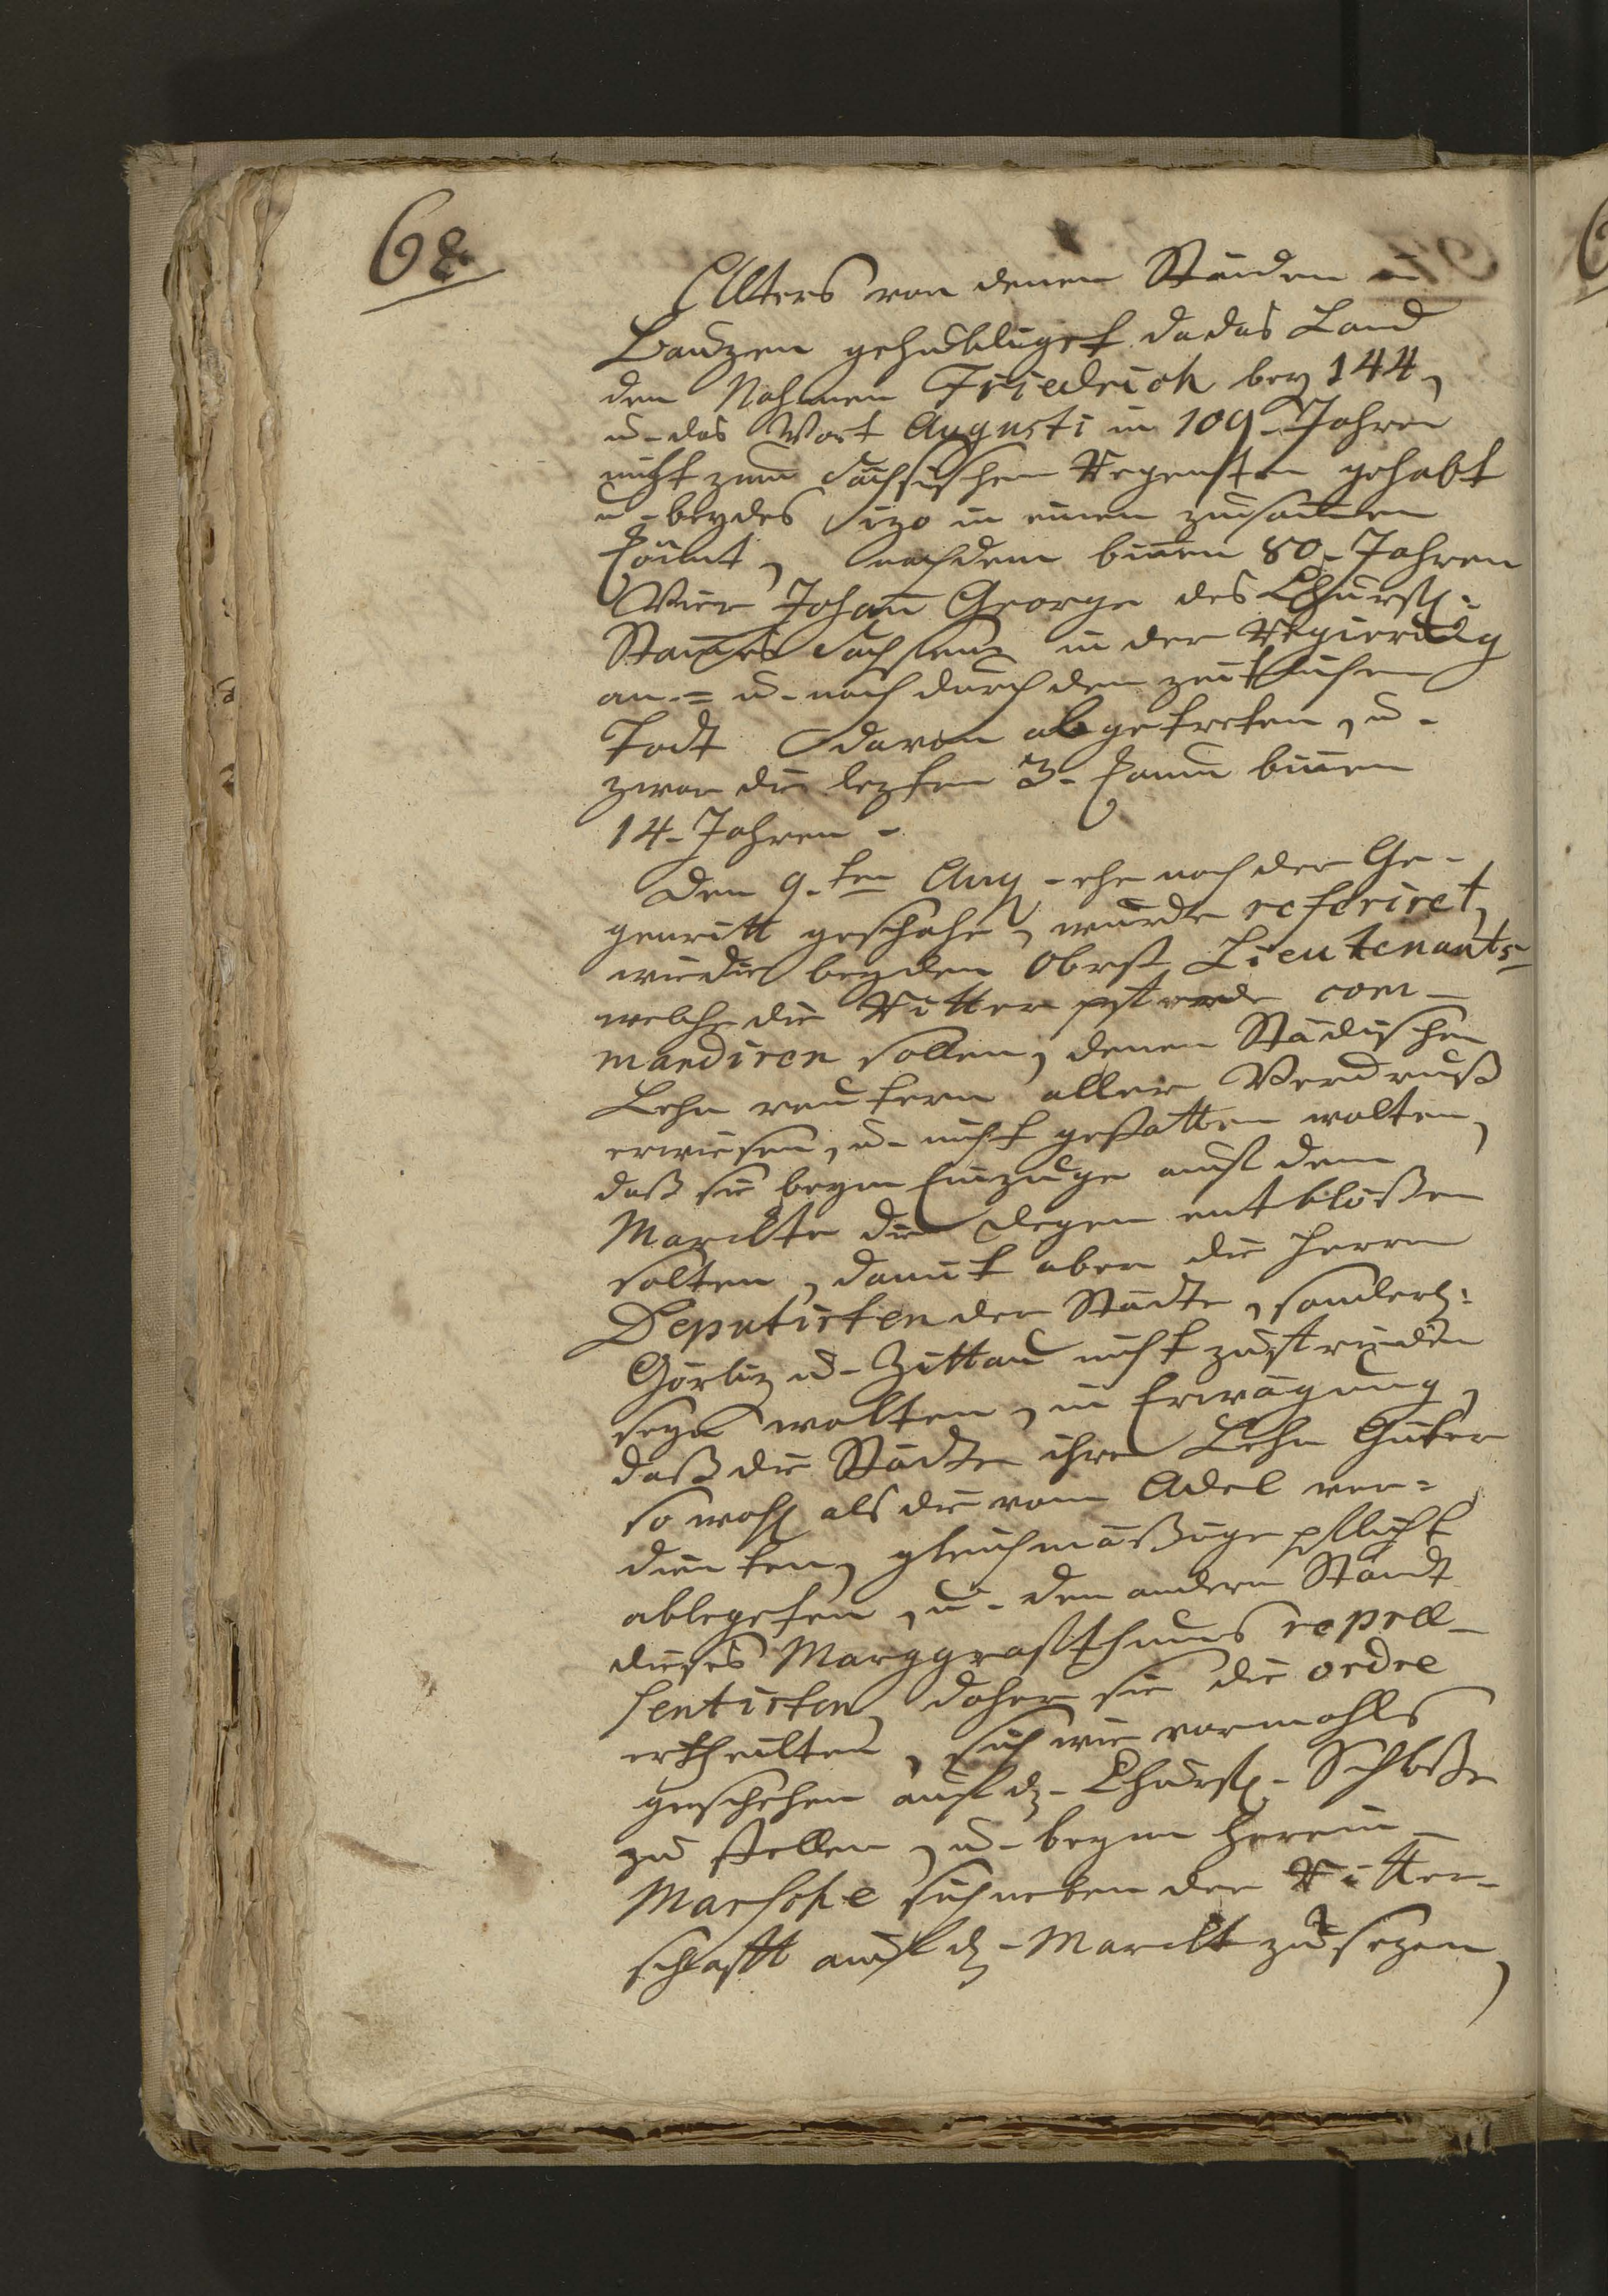 68.
Alters von denen Ständen in
Bauzen gehuldiget, da das Land
den Nahmen Friedrich bey 144,
u. das Wort Augusti in 109. Jahren
nicht zum Sächsischen Regenten gehabt
u. beydes izo in einen zusammen
kömt, nachdem binnen 80. Jahren
Vier Johann George des Churfl:
Stammes Sachsens in der Regierung
an = u. nach durch den zeitlichen
Todt davon abgetreten, u.
zwar die lezten 3. kaum binnen
14. Jahren.
Den 9.ten Aug. ehe noch der Ge-
genritt geschahe, wurde referiret,
wie die beyden Obrist Lieutenants
welche die Ritter pferde com-
mandiren sollen, denen Städischen
Lehn reutern aller Verdruß
erwiesen, u. nicht gestatten wolten,
daß sie beym Einzuge auf dem
Marckte die Degen entblößen
solten, damit aber die Herren
Deputirten der Städte, sonderl:
Görliz u. Zittau nicht zufrieden
seyn wolten, in Erwägung,
daß die Städte ihre Lehn Güter
so wohl als die vom Adel ver=
dienten, gleichmäßige pflicht
ablegeten, u. den andern Standt
dieses Marggrafthums repræ-
sentirten, daher sie die ordre
ertheilten, sich wie vormahls
geschehen auf dz. Churfl. Schloße
zu stellen, u. beym Herein-
Marsche sich neben der Ritter-
schafft auf dz. Marckt zu sezen,